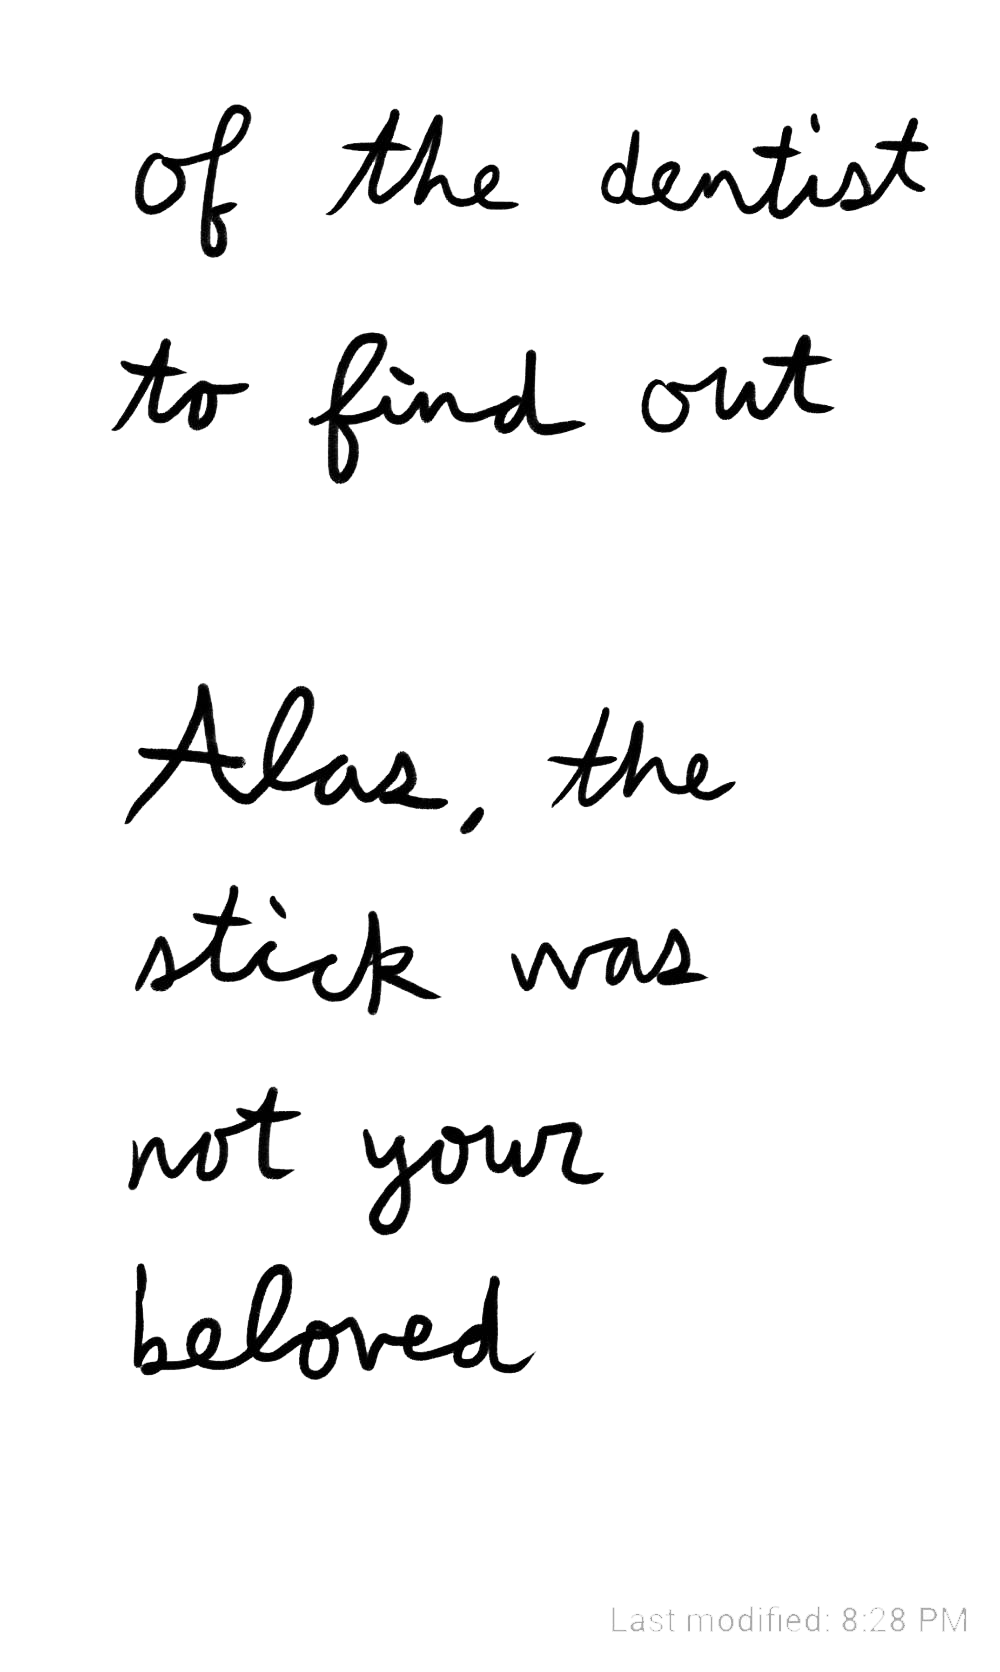 of the dentist
to find out
Alas, the
stick was
not your
beloved
Last modified: 8:28 PM